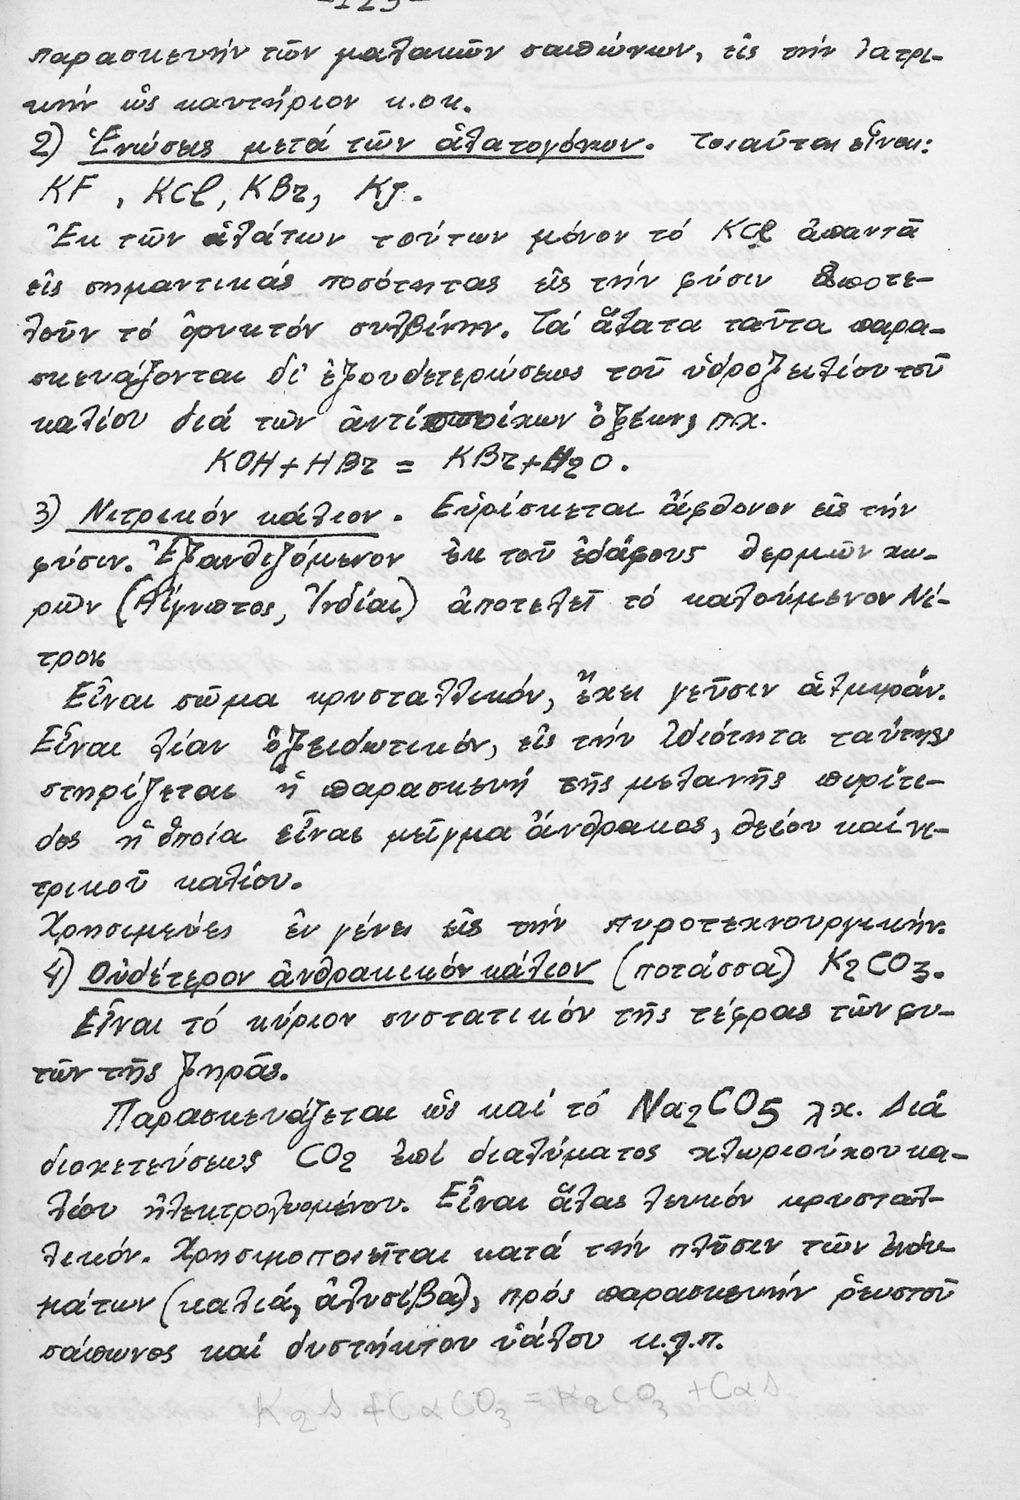 -125-
παρασκευήν τῶν μαλακῶν σαπώνων, εἰς τήν ἰατρι-
κήν ὡς καυτήριον κ.οκ.
2) Ἑνώσεις μετά τῶν ἁλατογόνων. Τοιαῦται εἶναι:
KF, KCl, KBr, KJ.
Ἐκ τῶν ἁλάτων τούτων μόνον τό KCl ἀπαντᾶ
εἰς σημαντικάς ποσότητας εἰς τήν φύσιν ἀποτε-
λοῦν τό ὀρυκτόν συλβίνην. Τά ἅλατα ταῦτα παρα-
σκευάζονται δι' ἐξουδετερώσεως τοῦ ὑδροξειλίου τοῦ
καλίου διά τῶν ἀντιστοίχων ὀξέων, πχ.
KOH+HBr = KBr+H2O.
3) Νιτρικόν κάλιον. Εὑρίσκεται ἄφθονον εἰς τήν
φύσιν. Ἐξανθιζόμενον ἐκ τοῦ ἐδάφους θερμῶν χω-
ρῶν (Αἴγυπτος, Ἰνδίαι) ἀποτελεῖ τό καλούμενον Νί-
τρον
Εἶναι σῶμα κρυσταλλικόν, ἔχει γεῦσιν ἁλμυράν.
Εἶναι λίαν ὀξειδωτικόν, εἰς τήν ἰδιότητα ταύτης
στηρίζεται ἡ παρασκευή τῆς μελανῆς πυρίτι-
δος ἡ ὁποία εἶναι μεῖγμα ἄνθρακος, θείου καί νι-
τρικοῦ καλίου.
Χρησιμεύει ἐν γένει εἰς τήν πυροτεχνουργικήν.
4) Οὐδέτερον ἀνθρακικόν κάλιον (ποτάσσα) K2CO3.
Εἶναι τό κύριον συστατικόν τῆς τέφρας τῶν φυ-
τῶν τῆς ξηρᾶς.
Παρασκευάζεται ὡς καί τό Na2CO5 λχ. Διά
διοχετεύσεως CO2 ἐπί διαλύματος χλωριούχου κα-
λίου ἠλεκτρολυομένου. Εἶναι ἅλας λευκόν κρυσταλ-
λικόν. Χρησιμοποιεῖται κατά τήν πλῦσιν τῶν ἐνδυ-
μάτων (καλιά, ἁλυσίβα), πρός παρασκευήν ῥευστοῦ
σάπωνος καί δυστήκτου ὑάλου κ.λ.π.
K2S+CaCO3 = K2CO3 +CaS